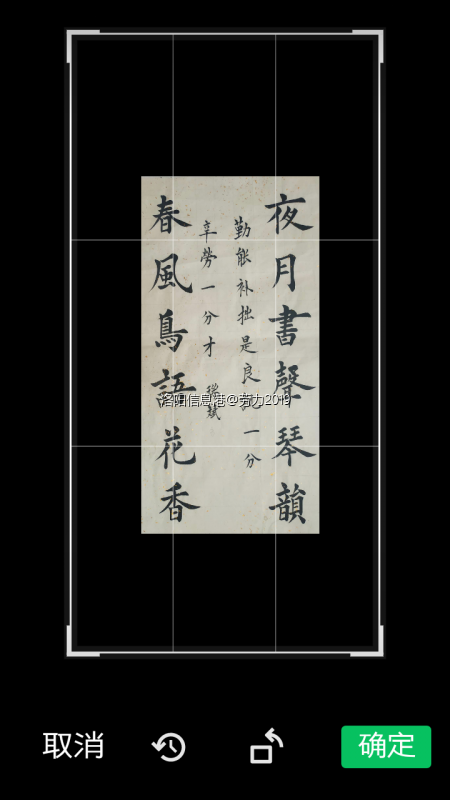 夜月書聲琴韻
勤能补拙是良 一分
辛勞一分才
春風鳥語花香
洛阳信息港@劳力2019
取消
确定